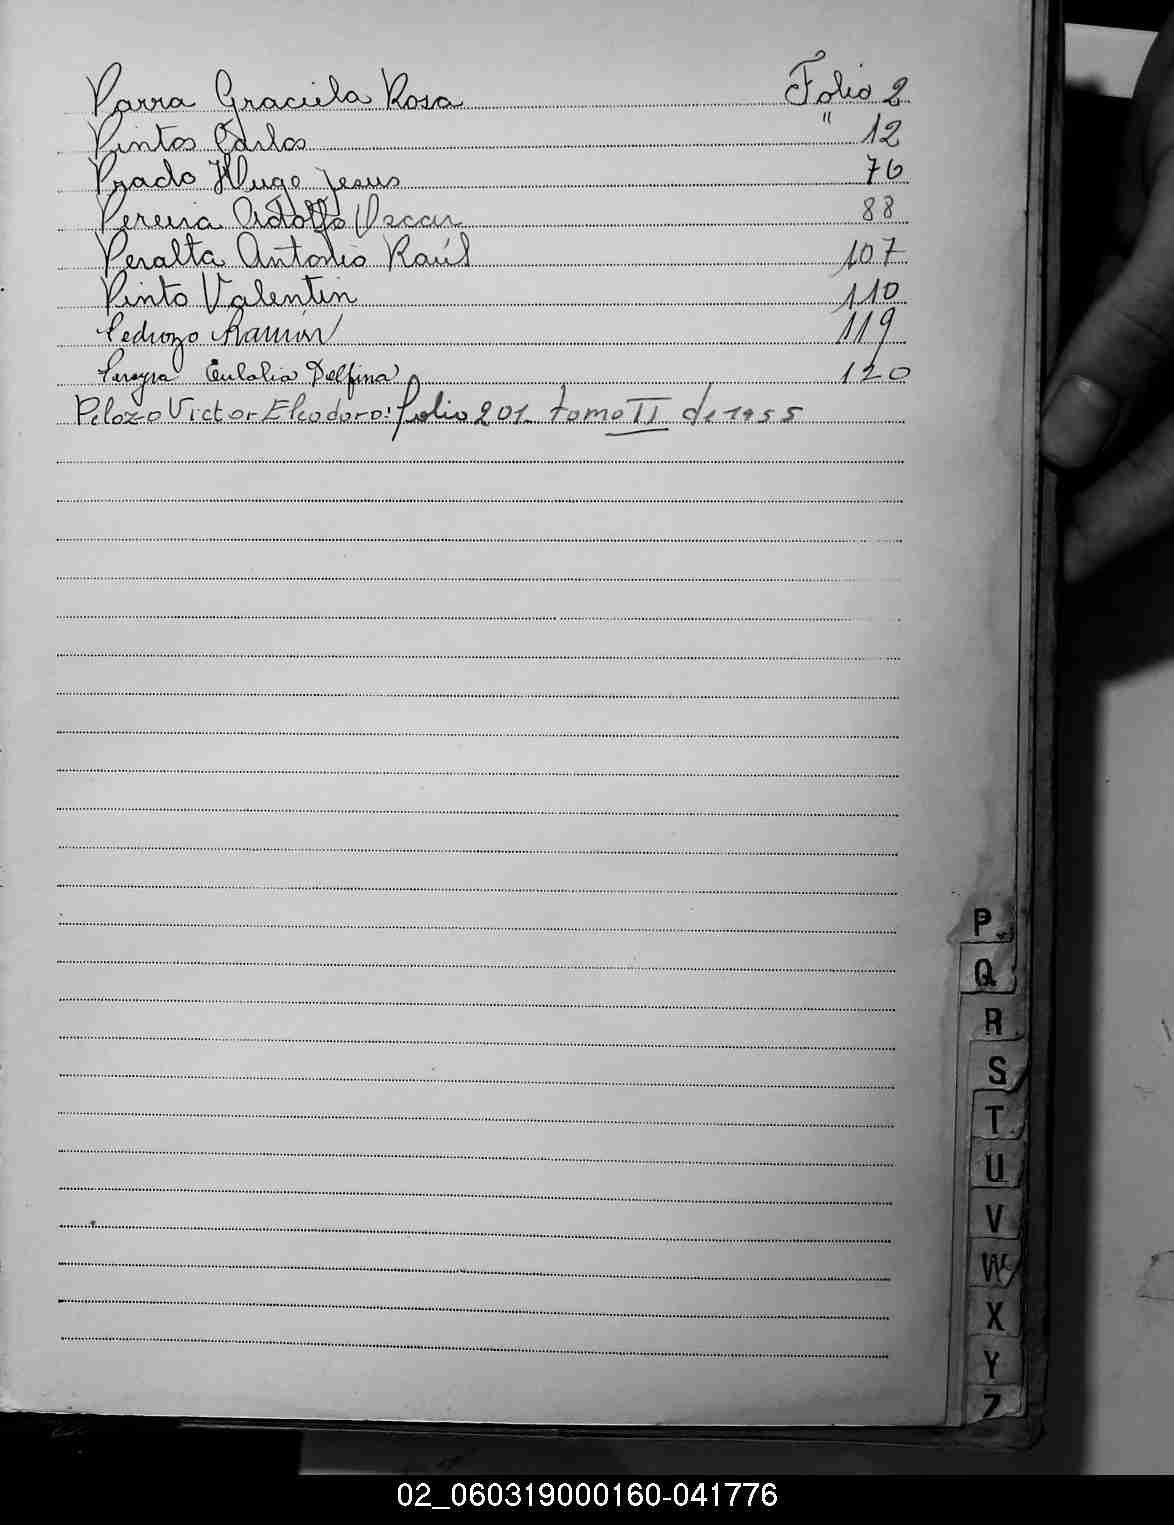 Parra Graciela Rosa Folio 2
Pintos Carlos " 12
Prado Hugo Jesus 76
Pereira Adolfo Oscar 88
Peralta Antonio Raúl 107
Pinto Valentin 110
Pedrozo Ramón 119
Pereyra Eulalia Delfina 120
Pelozo Victor Eleodoro: folio 201 tomo II de 1955
P
Q
R
S
T
U
V
W
X
Y
Z
02_060319000160-041776